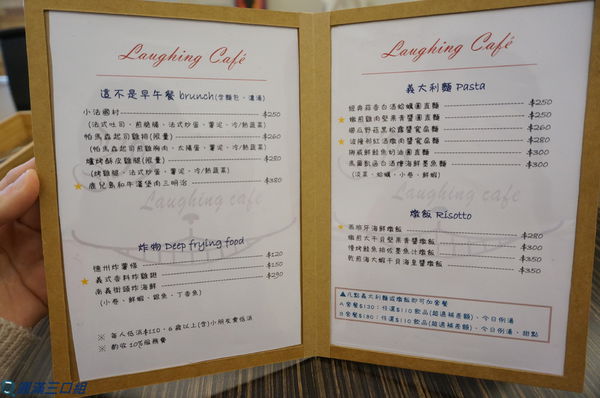 Laughing Café
這不是早午餐 brunch(含麵包、濃湯)
小法國村 $250
(法式吐司、煎燒腸、法式炒蛋、薯泥、冷/熱蔬菜)
帕馬森起司雞排(限量) $260
(帕馬森起司雞胸肉、太陽蛋、薯泥、冷/熱蔬菜)
爐烤酥皮雞腿(限量) $280
(烤雞腿、法式炒蛋、薯泥、冷/熱蔬菜)
★鹿兒島和牛漢堡肉三明治 $380
Laughing café
炸物 Deep frying food
德州炸薯條 $120
★義式香料炸雞翅 $150
南義街頭炸海鮮 $290
(小卷、鮮蝦、銀魚、丁香魚)
※ 每人低消$110，6歲以上(含)小朋友需低消
※ 酌收10%服務費
Laughing Café
義大利麵 Pasta
經典蒜香白酒蛤蠣圓直麵 $250
★嫩煎雞肉堅果青醬圓直麵 $250
櫛瓜野菇黑松露醬寬扁麵 $260
★法隆邦紅酒燉肉醬寬扁麵 $280
挪威鮮鮭魚奶油圓直麵 $300
馬爾凱函白酒燴海鮮墨魚麵 $300
(淡菜、蛤蠣、小卷、鮮蝦)
Laughing café
燉飯 Risotto
★西班牙海鮮燉飯 $280
嫩煎太干貝堅果青醬燉飯 $350
慢烤鮭魚排佐墨魚汁燉飯 $350
乾煎海大蝦干貝海皇醬燉飯 $350
▲凡點義大利麵或燉飯即可加套餐
A套餐$130：任選$110飲品(超過補差額)、今日例湯
B套餐$180：任選$110飲品(超過補差額)、今日例湯、甜點
圓滿三口組